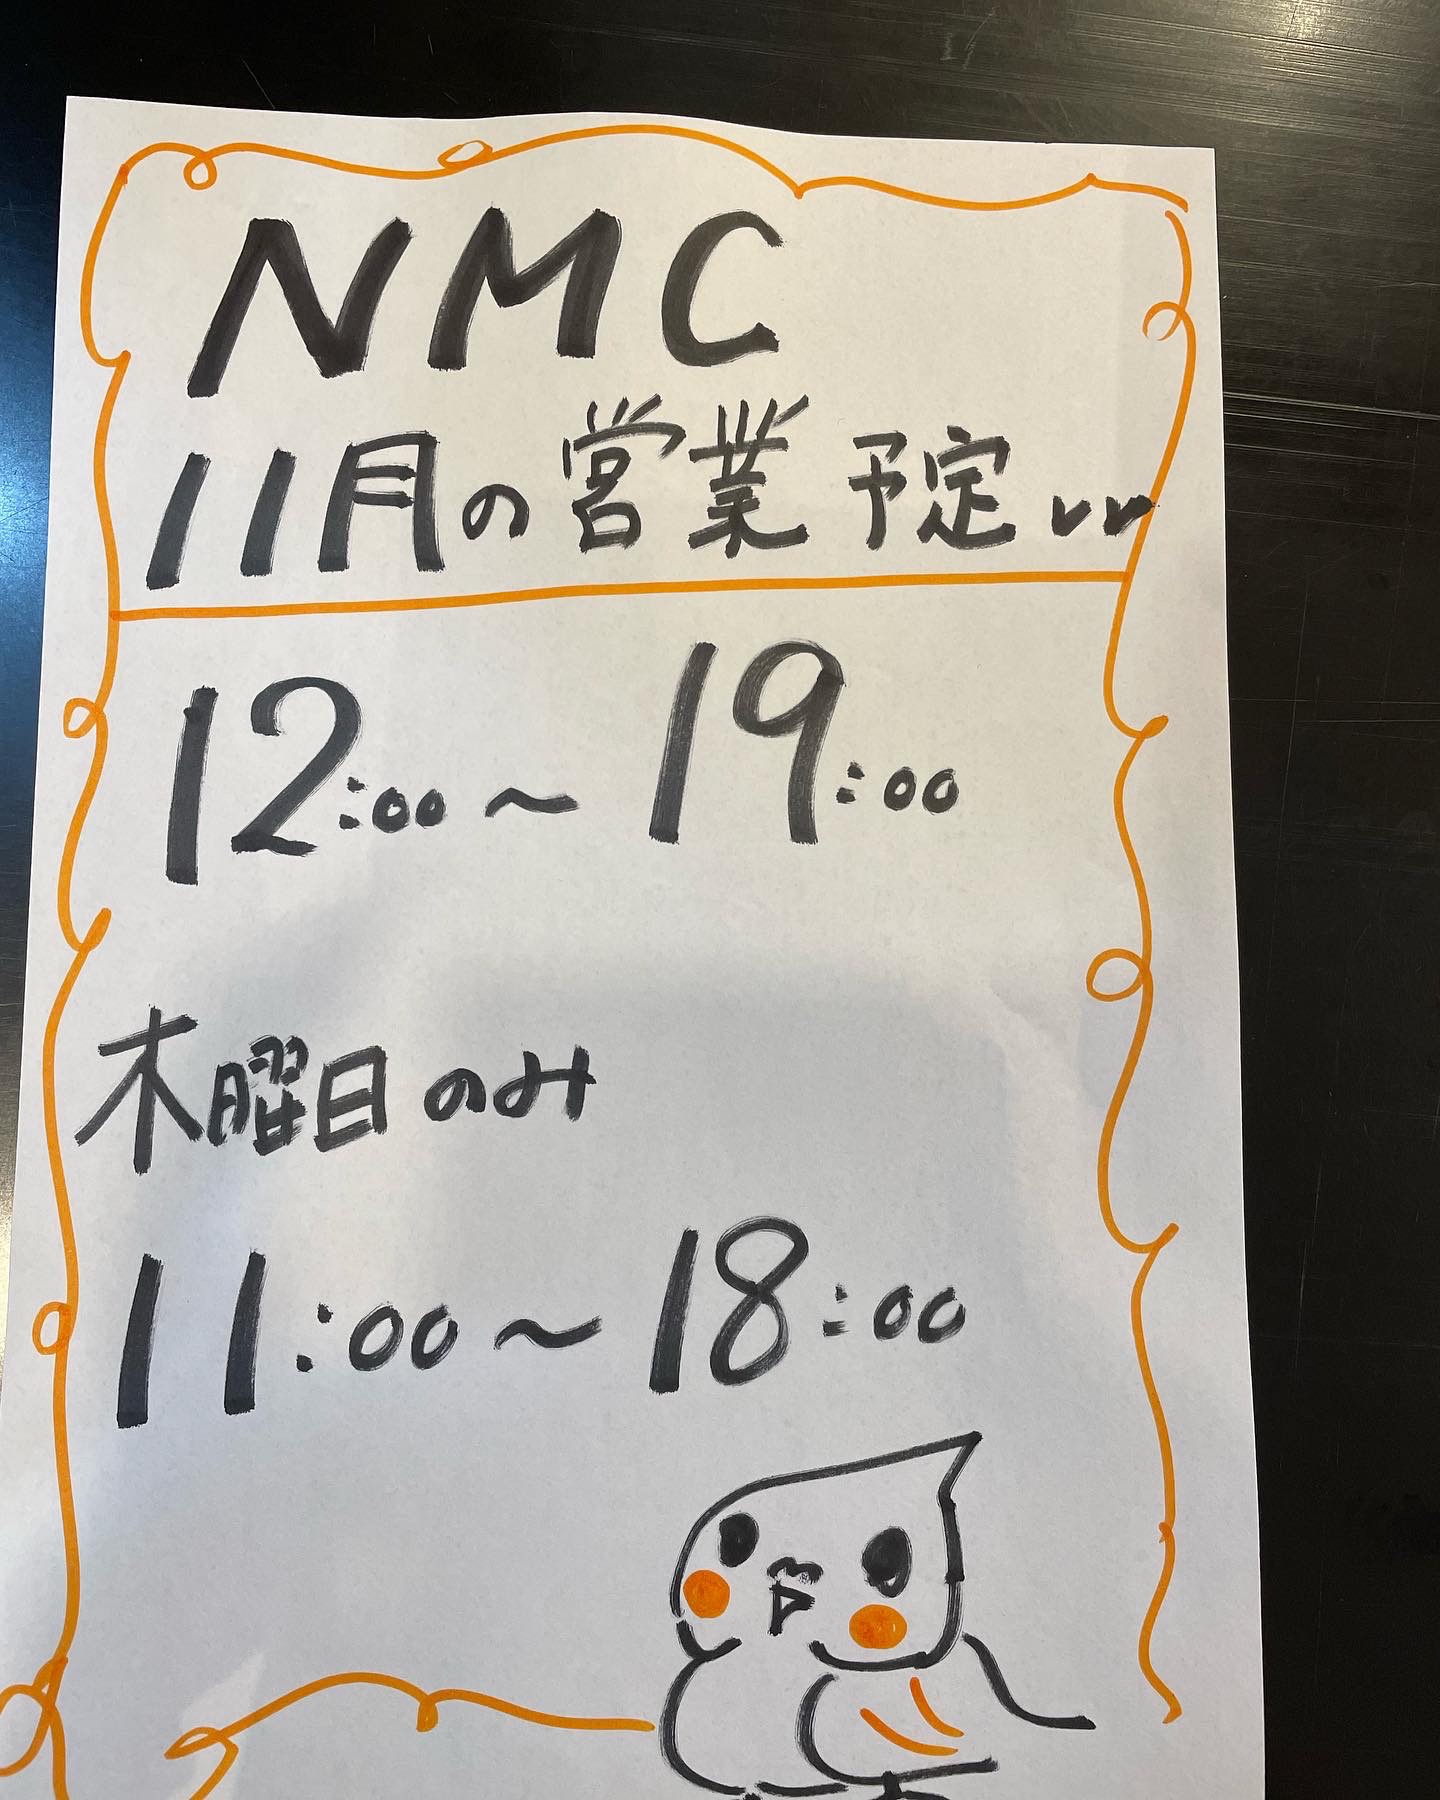 NMC
11月の営業予定
12:00〜19:00
木曜日のみ
11:00〜18:00